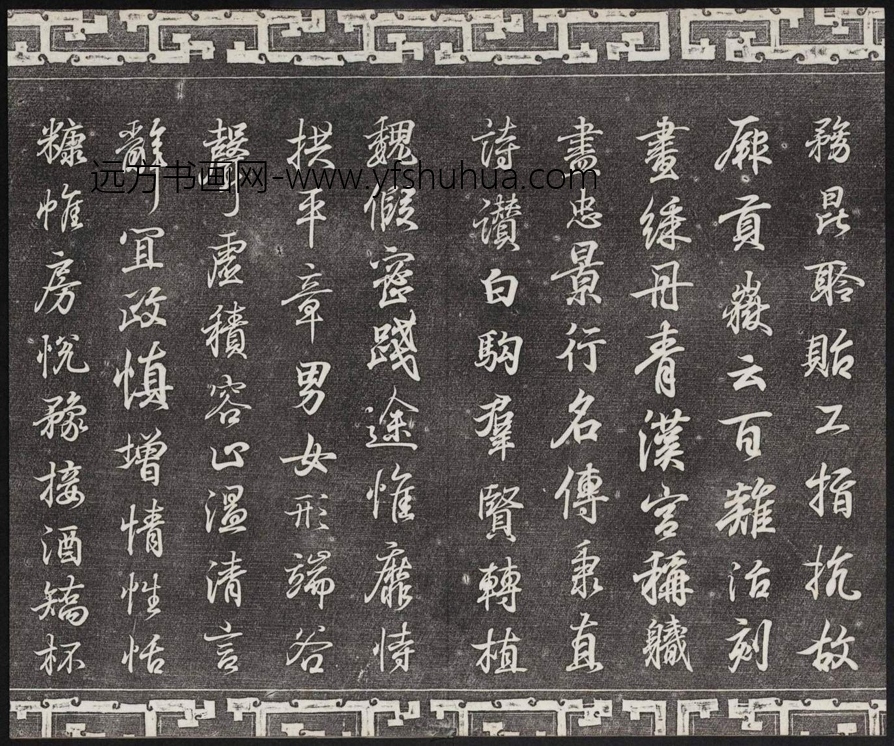 務昆聆貽工指抗故
厥貢嶽云百難活刻
畫綵丹青漢宮稱軄
盡忠景行名傳秉直
詩讚白駒羣賢轉植
魏假密踐途惟靡恃
拱平章男女形端谷
聲虛積容止溫清言
宜政慎增情性恬
糠帷房悅豫接酒矯杯
远方书画网-www.yfshuhua.com